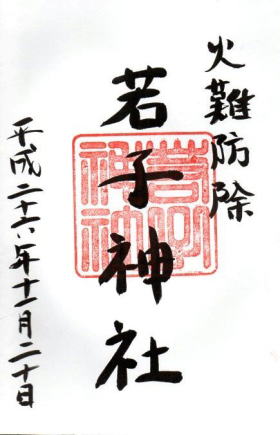 火難防除
若子神社
平成二十六年十一月二十日